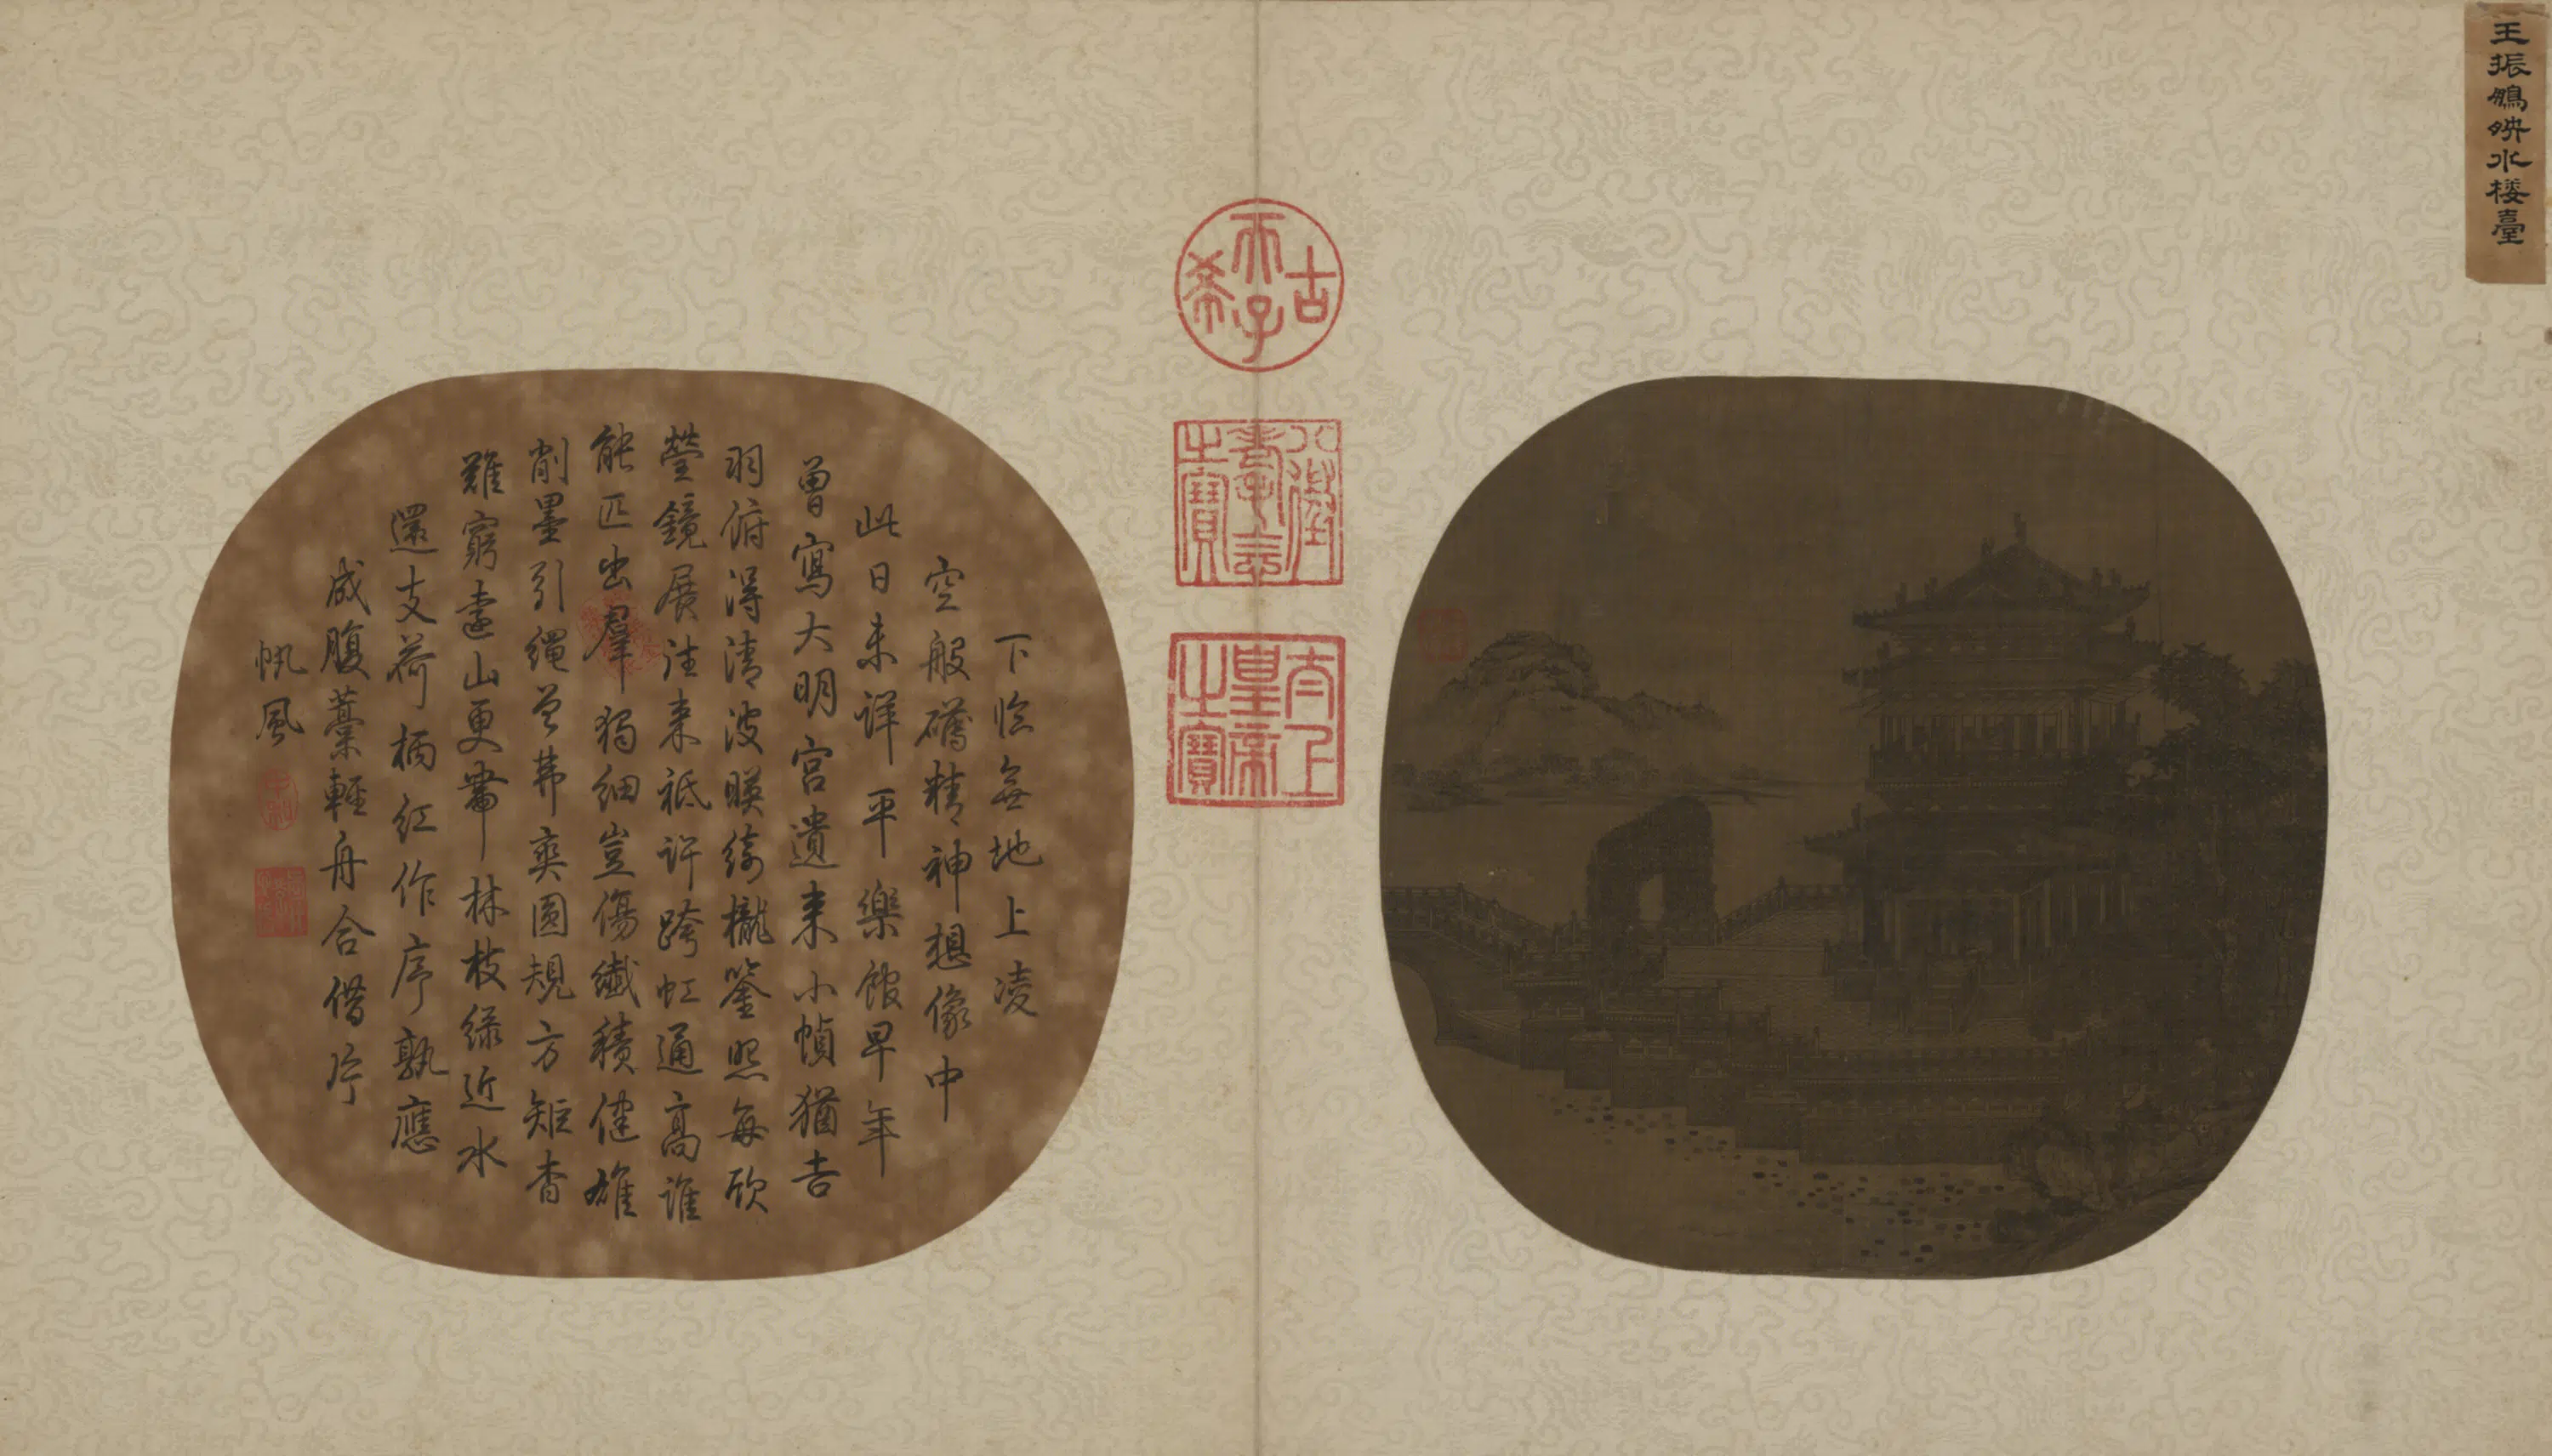 王振鵬映水樓臺
古
天子
希
八徵
耄念
之寶
太上
皇帝
之寶
下臨無地上凌
空般礴精神想像中
此日未詳平樂館早年
曾寫大明宮遺來小幀猶吉
羽俯得清波暎綺櫳鑒照每欣
瑩鏡展往來祗許跨虹通高誰
能匹出羣獨細豈傷纖積健雄
削墨引繩曾弗爽圓規方矩杳
難窮遠山更帶林枝綠近水
還支荷柄紅作序孰應
成腹藁輕舟合借片
帆風